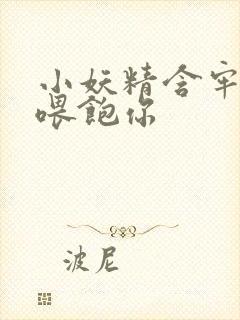 小妖精含牢
喂飽你
波尼